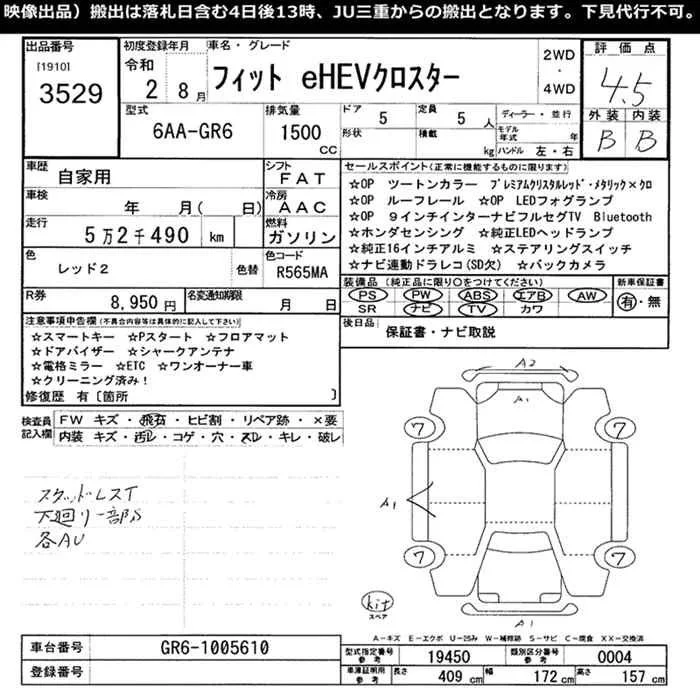 映像出品）搬出は落札日含む4日後13時、JU三重からの搬出となります。下見代行不可。
出品番号
[1910]
3529
初度登録年月
令和
2 8月
車名・グレード
フィット eHEVクロスター
2WD
・
4WD
評価点
4.5
外装 内装
B B
型式
6AA-GR6
排気量
1500
CC
ドア
5
定員
5 人
形状
積載
kg
ディーラー・並行
モデル年式 年
ハンドル 左・右
車歴
自家用
シフト
FAT
車検
年 月( 日)
冷房
AAC
走行
5万2千490 km
燃料
ガソリン
色
レッド2
色替
色コード
R565MA
R券
8,950円
名変通知期限
月 日
セールスポイント(正常に機能するものに限ります)
☆OP ツートンカラー プレミアムクリスタルレッド・メタリック×クロ
☆OP ルーフレール ☆OP LEDフォグランプ
☆OP 9インチインターナビフルセグTV Bluetooth
☆ホンダセンシング ☆純正LEDヘッドランプ
☆純正16インチアルミ ☆ステアリングスイッチ
☆ナビ連動ドラレコ(SD欠) ☆バックカメラ
装備品 (純正品に限り○をつけてください)
PS PW ABS エアB AW
SR ナビ TV カワ
新車保証書
有・無
後日品
保証書・ナビ取説
注意事項申告欄(不具合内容等は具体的に記入して下さい)
☆スマートキー ☆Pスタート ☆フロアマット
☆ドアバイザー ☆シャークアンテナ
☆電格ミラー ☆ETC ☆ワンオーナー車
☆クリーニング済み！
修復歴 有〔箇所 〕
検査員記入欄
FW キズ・飛石・ヒビ割・リペア跡・×要
内装 キズ・汚レ・コゲ・穴・スレ・キレ・破レ
スタッドレスT
下廻り一部S
各AU
A2
A1
7 7
A1
7 7
kit
スペア
A1
A-キズ E-エクボ U-凹み W-補修跡 S-サビ C-腐食 XX-交換済
車台番号
GR6-1005610
登録番号
型式指定番号
参考
19450
類別区分番号
参考
0004
車庫証明用
参考
長さ 409 cm 幅 172 cm 高さ 157 cm